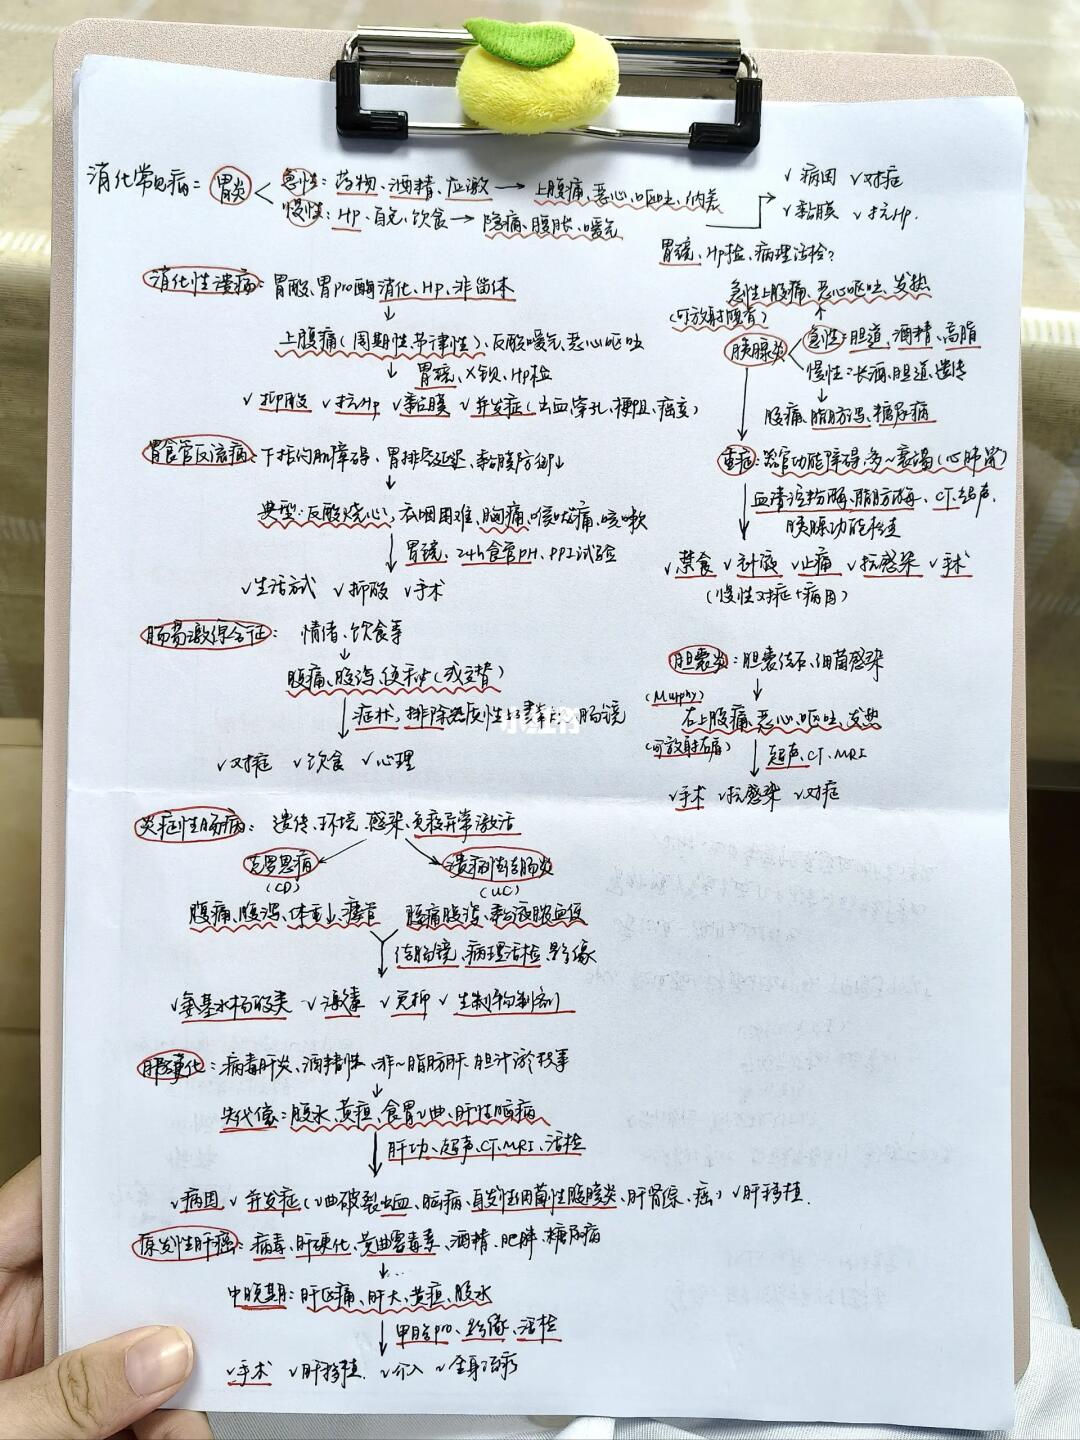 消化常见病：胃炎
急性：药物、酒精、应激→上腹痛、恶心、呕吐、纳差
慢性：HP、自免、饮食→隐痛、腹胀、嗳气
√病因 √对症
√黏膜 √抗Hp.
胃镜、Hp检、病理活检？
消化性溃疡：胃酸、胃pro酶消化、HP、非甾体
↓
上腹痛（周期性、节律性）、反酸嗳气、恶心呕吐
↓ 胃镜、X钡、HP检
√抑酸 √抗Hp √黏膜 √并发症（出血、穿孔、梗阻、癌变）
胃食管反流病：下括约肌障碍、胃排空延迟、黏膜防御↓
↓
典型：反酸烧心，吞咽困难、胸痛、喉咙痛、咳嗽
↓ 胃镜、24h食管PH、PPI试验
√生活方式 √抑酸 √手术
肠易激综合征：情绪、饮食等
↓
腹痛、腹泻、便秘（或交替）
↓ 症状、排除 肠镜
√对症 √饮食 √心理
急性上腹痛、恶心呕吐、发热
（可放射腰背）
胰腺炎
急性：胆道、酒精、高脂
慢性：长酒、胆道、遗传
↓
腹痛、脂肪泻、糖尿病
重症：器官功能障碍、多~衰竭（心肺肾）
血清淀粉酶、脂肪酶、CT、超声、
胰腺功能检查
√禁食 √补液 √止痛 √抗感染 √手术
（慢性对症+病因）
胆囊炎：胆囊结石、细菌感染
↓
（Murphy）
右上腹痛、恶心、呕吐、发热
（可放射右肩）
↓ 超声、CT、MRI
√手术 √抗感染 √对症
炎症性肠病：遗传、环境、感染、免疫异常激活
克罗恩病 溃疡性结肠炎
（CD） （UC）
腹痛、腹泻、体重↓、瘘管 腹痛腹泻、黏液脓血便
结肠镜、病理活检、影像
√氨基水杨酸类 √激素 √免抑 √生制物制剂
肝硬化：病毒肝炎、酒精性、非~脂肪肝、胆汁淤积等
↓
失代偿：腹水、黄疸、食胃v曲、肝性脑病
↓ 肝功、超声、CT、MRI、活检
√病因 √并发症（v曲破裂出血、脑病、自发性细菌性腹膜炎、肝肾综、癌）√肝移植.
原发性肝癌：病毒、肝硬化、黄曲霉毒素、酒精、肥胖、糖尿病
↓...
中晚期：肝区痛、肝大、黄疸、腹水
↓ 甲胎pro、影像、活检
√手术 √肝移植. √介入 √全身治疗
小红书